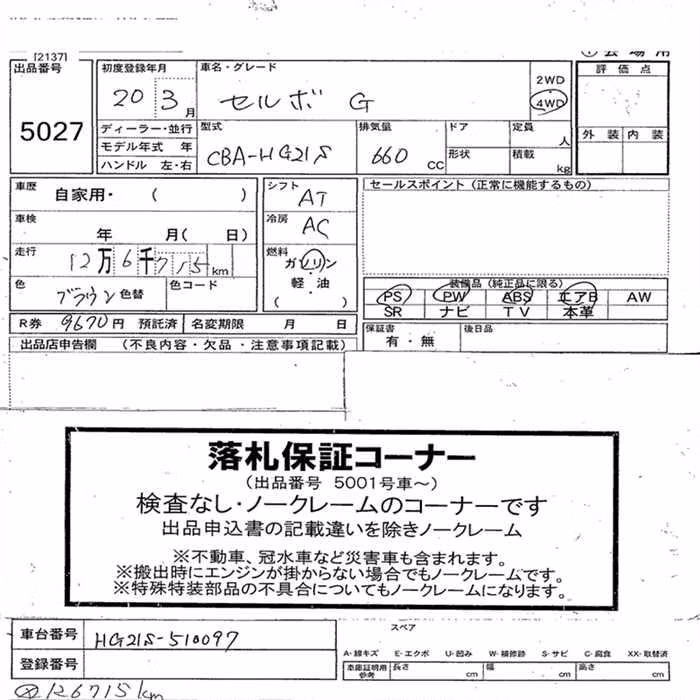 [2137]
出品番号
5027
初度登録年月
20 3月
車名・グレード
セルボ G
2WD
4WD
評価点
外装 内装
ディーラー・並行
モデル年式 年
ハンドル 左・右
型式
CBA-HG21S
排気量
660 CC
ドア
形状
定員 人
積載 kg
車歴
自家用・ ( )
車検
年 月( 日)
走行
12万6千715km
色
ブラウン 色替
色コード
シフト
AT
冷房
AC
燃料
ガソリン
軽・油
( )
セールスポイント(正常に機能するもの)
装備品(純正品に限る)
PS PW ABS エアB AW
SR ナビ TV 本革
R券 9670円 預託済 名変期限 月 日
保証書
有・無
後日品
出品店申告欄 (不良内容・欠品・注意事項記載)
落札保証コーナー
(出品番号 5001号車~)
検査なし・ノークレームのコーナーです
出品申込書の記載違いを除きノークレーム
※不動車、冠水車など災害車も含まれます。
※搬出時にエンジンが掛からない場合でもノークレームです。
※特殊特装部品の不具合についてもノークレームになります。
車台番号 HG21S-510097
登録番号
スペア
A-線キズ E-エクボ U-凹み W-補修跡 S-サビ C-腐食 XX-取替済
車庫証明用参考 長さ cm 幅 cm 高さ cm
126715km